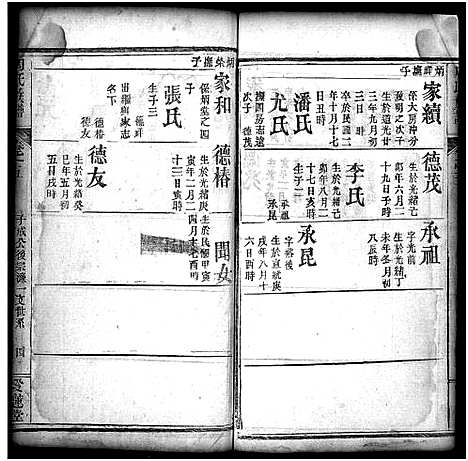 家續
係大房仲分
啟明之次子
生於道光廿
三年九月初
三日時
卒於民國二
年十月十七
日丑時
潘氏
尤氏
撫國易志遠
次子德茂
德茂
生於光緒己
卯年六月二
十九日子時
李氏
生於光緒己
卯年八月二
十七日亥時
生子二
承祖
承昆
承祖
字光前
生於光緒丁
未年三月初
八辰時
承昆
字裕後
生於宣統庚
戌年八月十
六日酉時
家和
係炳堂之四
子
張氏
生子三
德祥
出繼與家志
名下
德椿
德友
德椿
生於光緒庚
寅年二月二
十二日亥時
德友
生於光緒癸
巳年五月初
五日戌時
聞女
生於民國甲寅
四月十七酉時
子成公後宗濂一支世系
四
愛蓮堂